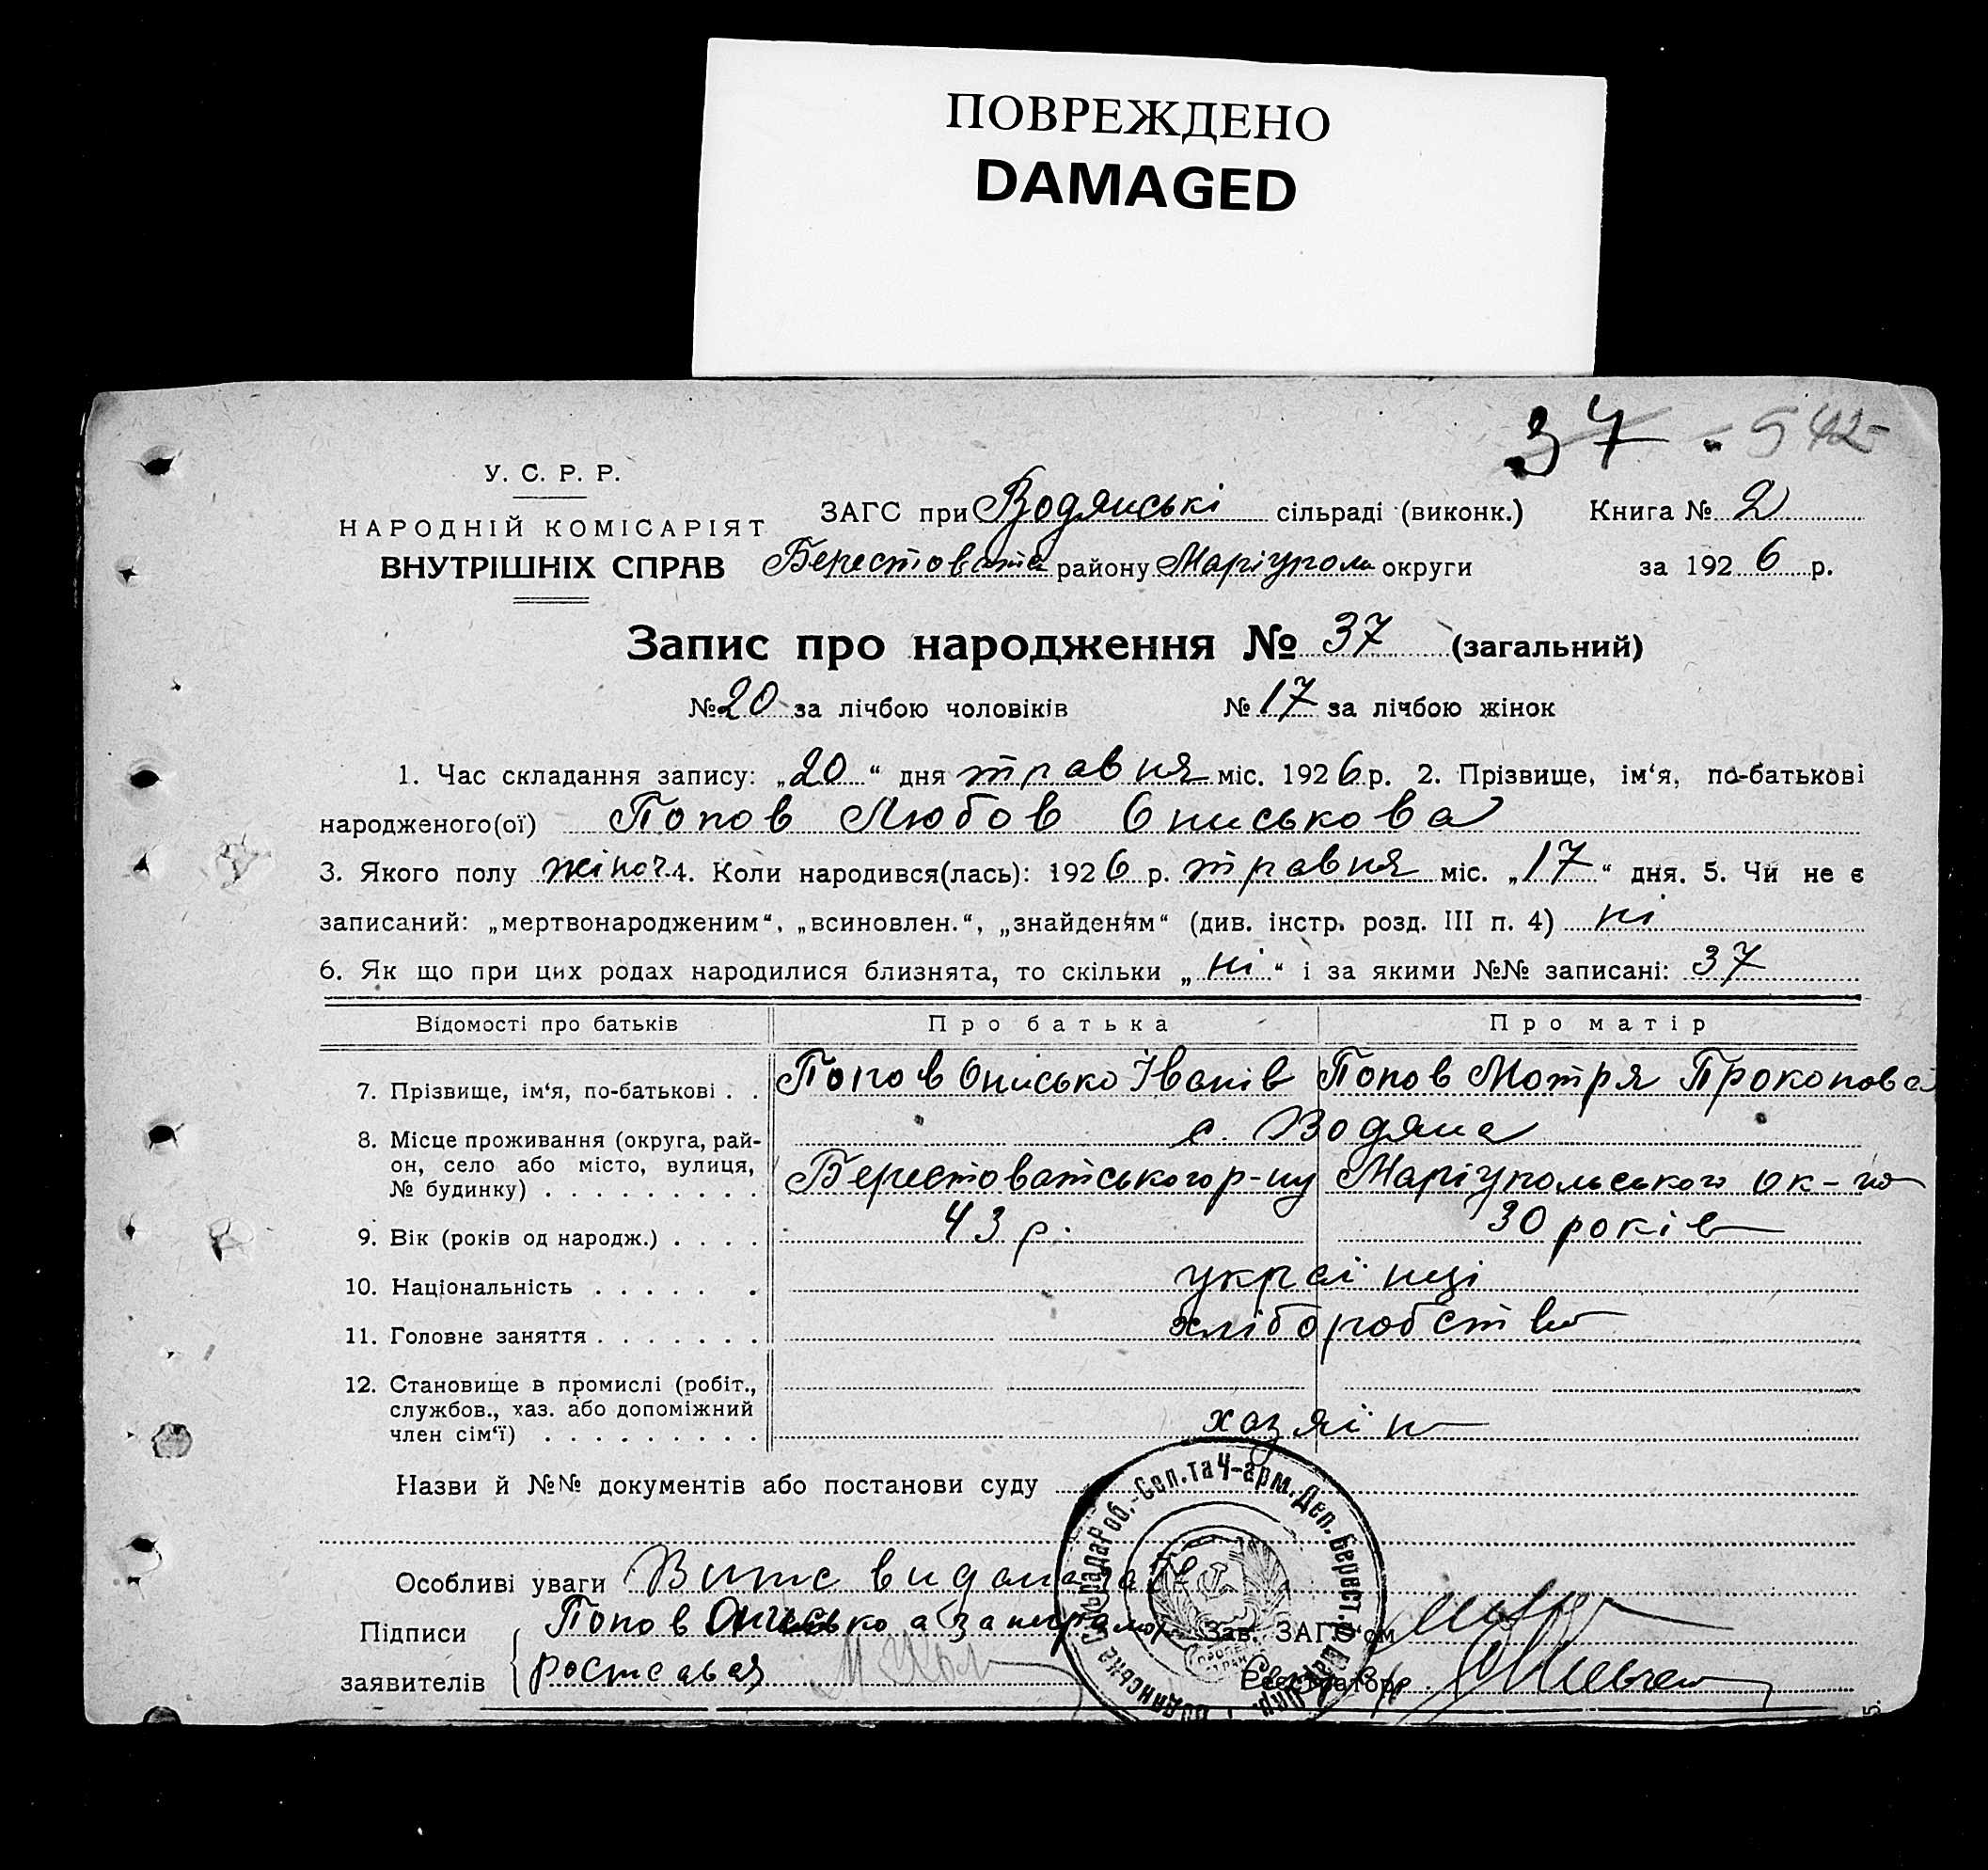 ПОВРЕЖДЕНО
DAMAGED
37 - 542
У. С. Р. Р.
НАРОДНІЙ КОМІСАРІЯТ
ВНУТРІШНІХ СПРАВ
ЗАГС при Водянські сільраді (виконк.) Книга № 2
Берестоватс району Маріупол округи за 1926 р.
Запис про народження № 37 (загальний)
№ 20 за лічбою чоловіків № 17 за лічбою жінок
1. Час складання запису: „20“ дня травня міс. 1926 р. 2. Прізвище, ім‘я, по-батькові
народженого(ої) Попов Любов Ониськова
3. Якого полу жіноч. 4. Коли народився(лась): 1926 р. травня міс. „17“ дня. 5. Чи не є
записаний: „мертвонародженим“, „всиновлен.“, „знайденям“ (див. інстр. розд. III п. 4) ні
6. Як що при цих родах народилися близнята, то скільки „ні“ і за якими №№ записані: 37
Відомості про батьків Про батька Про матір
7. Прізвище, ім‘я, по-батькові . . Попов Онисько Іванів Попов Мотря Прокопова
8. Місце проживання (округа, рай- с. Водяна
он, село або місто, вулиця,
№ будинку) . . . . . . . . . Берестоватського р-ну Маріупольського ок-го
9. Вік (років од народж.) . . . . 43 р. 30 років
10. Національність . . . . . . українці
11. Головне заняття . . . . . . . хліборобство
12. Становище в промислі (робіт.,
службов., хаз. або допоміжний
член сім‘ї) . . . . . . . . . хазяїн
Назви й №№ документів або постанови суду
Особливі уваги Витс видана
Підписи Попов Онисько а за
заявителів
Зав. ЗАГС‘ом
Реєстратор